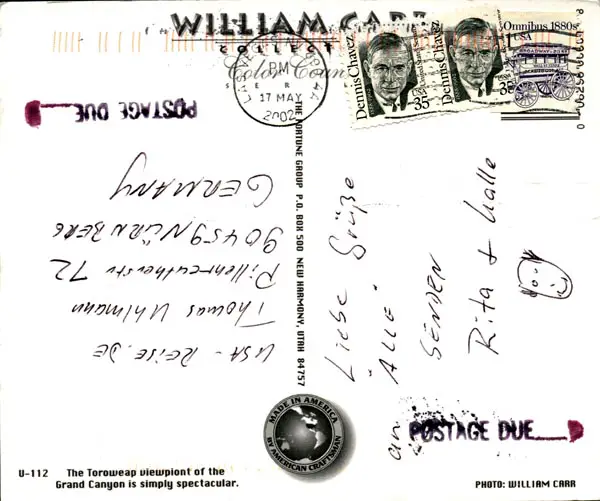 WILLIAM CARR
COLLECT
Color Coun
LAS VEGAS NV
PM
17 MAY
2002
Dennis Chavez
35
USA
Dennis Chavez
35
USA
Omnibus 1880s
USA
POSTAGE DUE
THE FORTUNE GROUP P.O. BOX 500 NEW HARMONY, UTAH 84757
USA - REISE.DE
Thomas Uhlmann
Pillenreutherstr 72
90459 NÜRNBERG
GERMANY
Liebe Grüße
an ÄLLE.
SENDEN
Rita + Kalle
MADE IN AMERICA
BY AMERICAN CRAFTSMAN
POSTAGE DUE
U-112 The Toroweap viewpiont of the
Grand Canyon is simply spectacular.
PHOTO: WILLIAM CARR